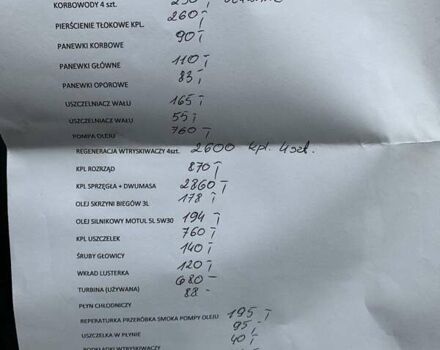 KORBOWODY 4 szt.
PIERŚCIENIE TŁOKOWE KPL. 260
PANEWKI KORBOWE 90
PANEWKI GŁÓWNE 110
PANEWKI OPOROWE 83
USZCZELNIACZ WAŁU 165
USZCZELNIACZ WAŁU 55
POMPA OLEJU 760
REGENERACJA WTRYSKIWACZY 4szt. 2600 kpl. 4szt.
KPL ROZRZĄD 870
KPL SPRZĘGŁA + DWUMASA 2860
OLEJ SKRZYNI BIEGÓW 3L 178
OLEJ SILNIKOWY MOTUL 5L 5W30 194
KPL USZCZELEK 760
ŚRUBY GŁOWICY 140
WKŁAD LUSTERKA 120
TURBINA (UŻYWANA) 680
PŁYN CHŁODNICZY 88
REPERATURKA PRZERÓBKA SMOKA POMPY OLEJU 195
USZCZELKA W PŁYNIE 95
PODKŁADKI WTRYSKIWACZY 40